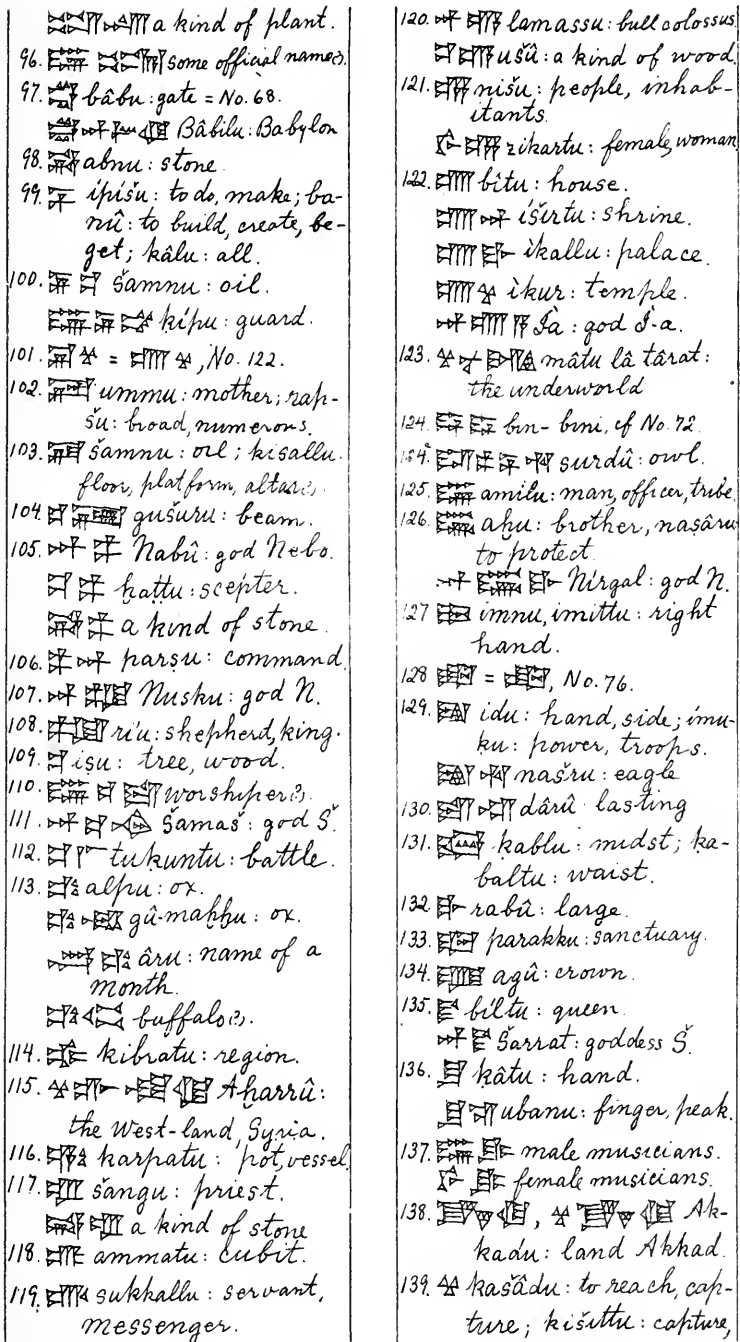 a kind of plant.
96. some official name(?).
97. bâbu: gate = No. 68.
Bâbilu: Babylon
98. abnu: stone.
99. ípišu: to do, make; ba-
nû: to build, create, be-
get; kâlu: all.
100. šamnu: oil.
kípu: guard.
101. = , No. 122.
102. ummu: mother; rap-
šu: broad, numerous.
103. šamnu: oil; kisallu:
floor, platform, altar(?).
104. gušuru: beam.
105. Nabû: god Nebo.
ḫaṭṭu: scepter.
a kind of stone.
106. parṣu: command.
107. Nusku: god N.
108. rí'u: shepherd, king.
109. iṣu: tree, wood.
110. worshiper(?).
111. Šamaš: god Š.
112. tuḳuntu: battle.
113. alpu: ox.
gû-maḫḫu: ox.
âru: name of a
month.
buffalo(?).
114. kibratu: region.
115. Aḫarrû:
the West-land, Syria.
116. karpatu: pot, vessel.
117. šangu: priest.
a kind of stone
118. ammatu: cubit.
119. sukkallu: servant,
messenger.
120. lamassu: bull colossus
ušû: a kind of wood
121. nišu: people, inhab-
itants.
zikartu: female, woman
122. bîtu: house.
íširtu: shrine.
íkallu: palace.
íkur: temple.
Ía: god Í-a.
123. mâtu lâ târat:
the underworld
124. bin-bini, cf No. 72.
124ª. surdû: owl.
125. amilu: man, officer, tribe
126. aḫu: brother, naṣâru
to protect.
Nírgal: god N.
127 imnu, imittu: right
hand.
128 = , No. 76.
129. idu: hand, side; ímu-
ḳu: power, troops.
našru: eagle
130. dârû lasting
131. ḳablu: midst; ḳa-
baltu: waist.
132. rabû: large.
133. parakku: sanctuary.
134. agû: crown.
135. bíltu: queen
Šarrat: goddess Š.
136. ḳâtu: hand.
ubanu: finger, peak.
137. male musicians.
female musicians.
138. , Ak-
kadu: land Akkad.
139. kašâdu: to reach, cap-
ture; kišittu: capture,